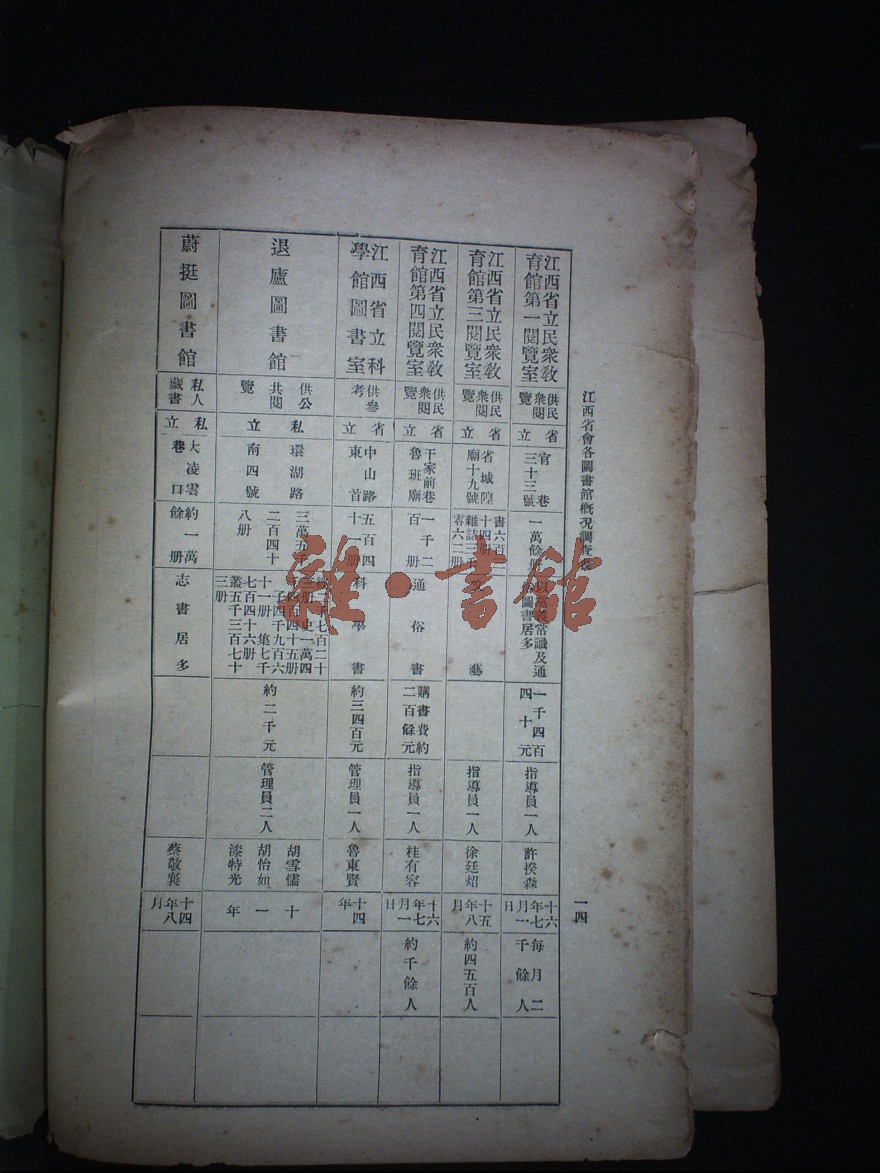 江西省會各圖書館概況調查表
一四
江西省立民衆教
育館第一閱覽室
供民
衆閱
覽
省立
官巷
三十三號
一萬餘册
以
常識及通
俗圖書居多
一千四百
四十元
指導員一人
許揆森
十六
年七
月一
日
每月二
千餘人
江西省立民衆教
育館第三閱覽室
供民
衆閱
覽
省立
省城隍
廟十九號
書六百
十四册
雜誌三
零六二册
文藝
指導員一人
徐廷炤
十五
年八
月
約四五百人
江西省立民衆教
育館第四閱覽室
供民
衆閱
覽
省立
干家前巷
魯班廟
一千二
百册
通俗書
購書費約
二百餘元
指導員一人
桂有容
十六
年七
月一
日
約千餘人
江西省立科
學館圖書室
供參
考
省立
中山路
東首
五百四
十一册
科學書
約三四百元
管理員一人
魯東賢
十四
年
退廬圖書館
供公
共閱
覽
私立
環湖路
南四號
三萬五千
二百四十
八册
千七百二十
册史一萬四
四百四十五册
子四千九百六
十一册集七千
七百四十六册
叢五千三百七十
三册
約二千元
管理員二人
胡雪儒
胡怡如
漆特光
十一年
蔚挺圖書館
私人
藏書
私立
大凌雲
巷口
約一萬
餘册
志書居多
蔡敬襄
十四
年八
月
雜·書館